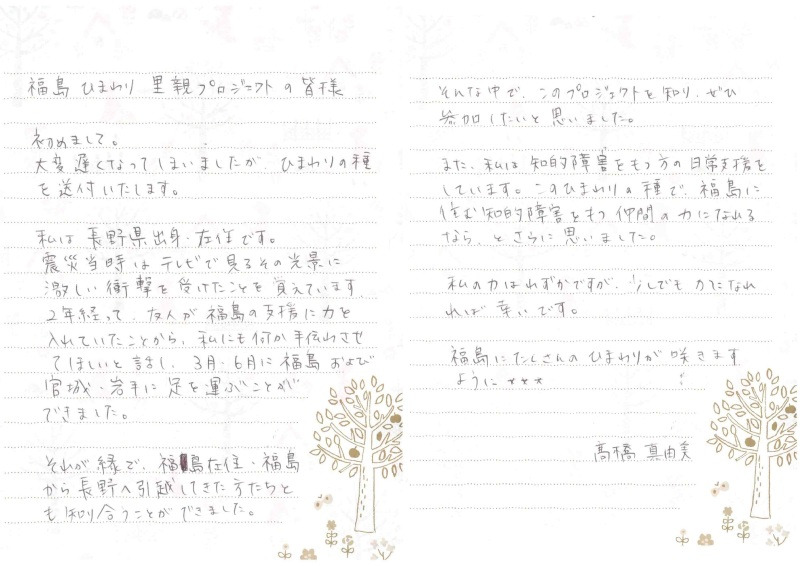 福島 ひまわり 里親プロジェクトの皆様
初めまして。
大変遅くなってしまいましたが、ひまわりの種
を送付いたします。
私は長野県出身・在住です。
震災当時はテレビで見るその光景に
激しい衝撃を受けたことを覚えています。
2年経って、友人が福島の支援に力を
入れていたことから、私にも何か手伝わさせ
てほしいと話し、3月・6月に福島および
宮城・岩手に足を運ぶことが
できました。
それが縁で、福島在住・福島
から長野へ引越してきた方たちと
も知り合うことができました。
そんな中で、このプロジェクトを知り、ぜひ
参加したいと思いました。
また、私は知的障害をもつ方の日常支援を
しています。このひまわりの種で、福島に
住む知的障害をもつ仲間の力になれる
なら、とさらに思いました。
私の力はわずかですが、少しでも力になれ
れば幸いです。
福島にたくさんのひまわりが咲きます
ように ***
高橋 真由美